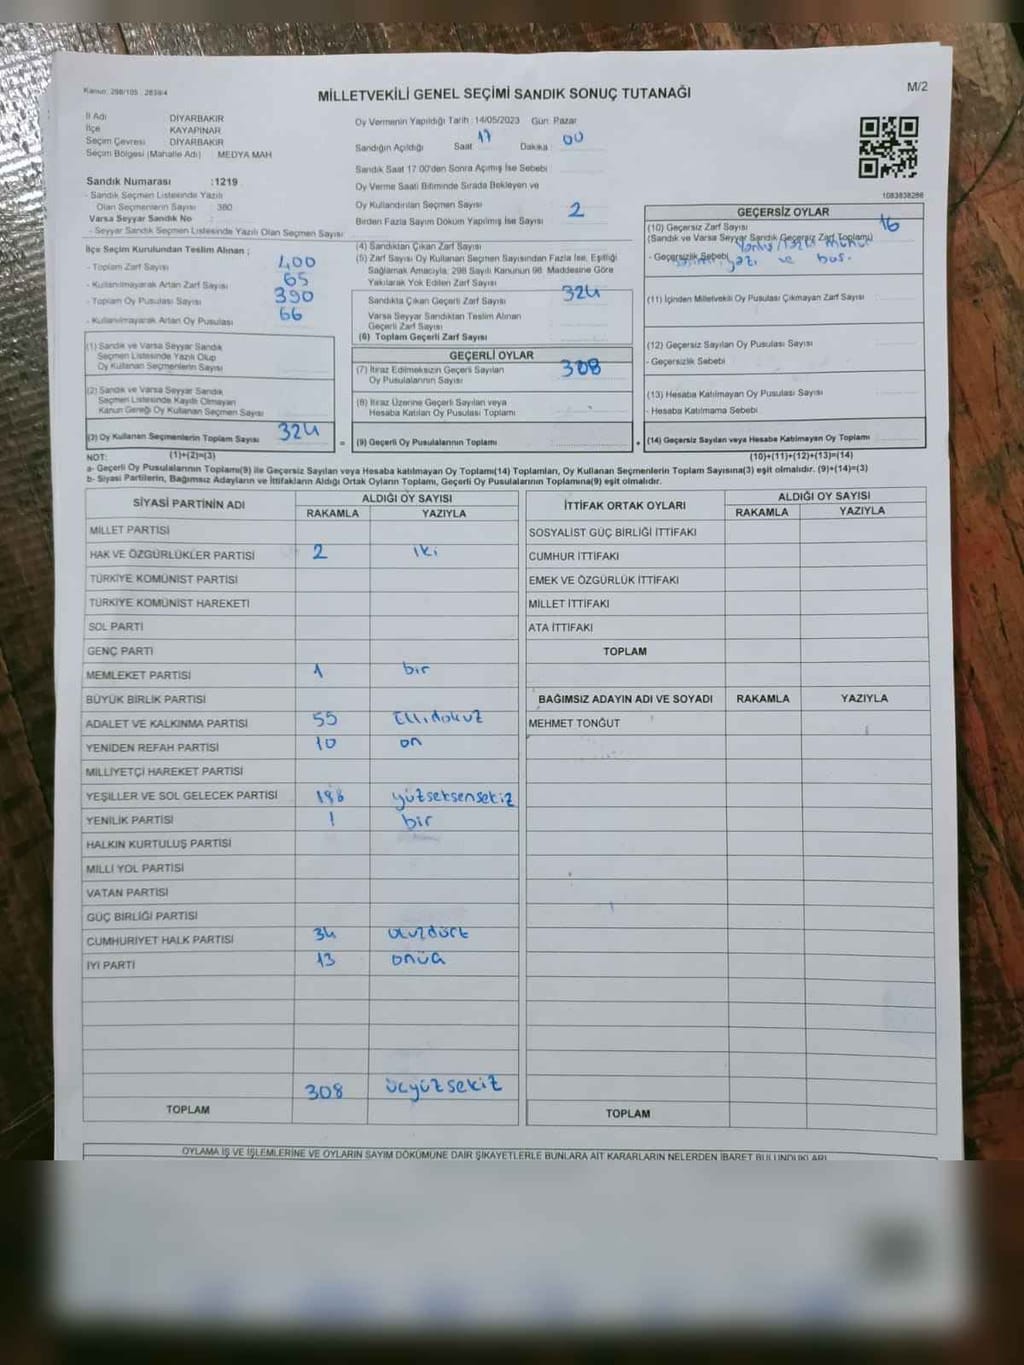 Kanun: 298/105 : 2839/4
MİLLETVEKİLİ GENEL SEÇİMİ SANDIK SONUÇ TUTANAĞI
M/2
İl Adı DİYARBAKIR
İlçe KAYAPINAR
Seçim Çevresi DİYARBAKIR
Seçim Bölgesi (Mahalle Adı) MEDYA MAH
Sandık Numarası :1219
- Sandık Seçmen Listesinde Yazılı
Olan Seçmenlerin Sayısı 380
Varsa Seyyar Sandık No :
- Seyyar Sandık Seçmen Listesinde Yazılı Olan Seçmen Sayısı
İlçe Seçim Kurulundan Teslim Alınan ;
- Toplam Zarf Sayısı 400
- Kullanılmayarak Artan Zarf Sayısı 65
- Toplam Oy Pusulası Sayısı 390
- Kullanılmayarak Artan Oy Pusulası 66
(1) Sandık ve Varsa Seyyar Sandık
Seçmen Listesinde Yazılı Olup
Oy Kullanan Seçmenlerin Sayısı
(2) Sandık ve Varsa Seyyar Sandık
Seçmen Listesinde Kayıtlı Olmayan
Kanun Gereği Oy Kullanan Seçmen Sayısı
(3) Oy Kullanan Seçmenlerin Toplam Sayısı 324
(1)+(2)=(3)
Oy Vermenin Yapıldığı Tarih : 14/05/2023 Gün: Pazar
Sandığın Açıldığı Saat 17 Dakika : 00
Sandık Saat 17:00'den Sonra Açılmış İse Sebebi
Oy Verme Saati Bitiminde Sırada Bekleyen ve
Oy Kullandırılan Seçmen Sayısı 2
Birden Fazla Sayım Döküm Yapılmış İse Sayısı
(4) Sandıktan Çıkan Zarf Sayısı
(5) Zarf Sayısı Oy Kullanan Seçmen Sayısından Fazla İse, Eşitliği
Sağlamak Amacıyla, 298 Sayılı Kanunun 98. Maddesine Göre
Yakılarak Yok Edilen Zarf Sayısı
Sandıkta Çıkan Geçerli Zarf Sayısı 324
Varsa Seyyar Sandıktan Teslim Alınan
Geçerli Zarf Sayısı
(6) Toplam Geçerli Zarf Sayısı
GEÇERLİ OYLAR
(7) İtiraz Edilmeksizin Geçerli Sayılan 308
Oy Pusulalarının Sayısı
(8) İtiraz Üzerine Geçerli Sayılan veya
Hesaba Katılan Oy Pusulası Toplamı
= (9) Geçerli Oy Pusulalarının Toplamı +
1083838286
GEÇERSİZ OYLAR
(10) Geçersiz Zarf Sayısı 16
(Sandık ve Varsa Seyyar Sandık Geçersiz Zarf Toplamı)
- Geçersizlik Sebebi yazı ve boş.
(11) İçinden Milletvekili Oy Pusulası Çıkmayan Zarf Sayısı
(12) Geçersiz Sayılan Oy Pusulası Sayısı
- Geçersizlik Sebebi
(13) Hesaba Katılmayan Oy Pusulası Sayısı
- Hesaba Katılmama Sebebi
(14) Geçersiz Sayılan veya Hesaba Katılmayan Oy Toplamı
(10)+(11)+(12)+(13)=(14)
NOT:
a- Geçerli Oy Pusulalarının Toplamı(9) ile Geçersiz Sayılan veya Hesaba katılmayan Oy Toplamı(14) Toplamları, Oy Kullanan Seçmenlerin Toplam Sayısına(3) eşit olmalıdır. (9)+(14)=(3)
b- Siyasi Partilerin, Bağımsız Adayların ve İttifakların Aldığı Ortak Oyların Toplamı, Geçerli Oy Pusulalarının Toplamına(9) eşit olmalıdır.
SİYASİ PARTİNİN ADI ALDIĞI OY SAYISI
RAKAMLA YAZIYLA
MİLLET PARTİSİ
HAK VE ÖZGÜRLÜKLER PARTİSİ 2 iki
TÜRKİYE KOMÜNİST PARTİSİ
TÜRKİYE KOMÜNİST HAREKETİ
SOL PARTİ
GENÇ PARTİ
MEMLEKET PARTİSİ 1 bir
BÜYÜK BİRLİK PARTİSİ
ADALET VE KALKINMA PARTİSİ 59 Ellidokuz
YENİDEN REFAH PARTİSİ 10 on
MİLLİYETÇİ HAREKET PARTİSİ
YEŞİLLER VE SOL GELECEK PARTİSİ 188 yüzseksensekiz
YENİLİK PARTİSİ 1 bir
HALKIN KURTULUŞ PARTİSİ
MİLLİ YOL PARTİSİ
VATAN PARTİSİ
GÜÇ BİRLİĞİ PARTİSİ
CUMHURİYET HALK PARTİSİ 34 otuzdört
İYİ PARTİ 13 onüç
308 üçyüzsekiz
TOPLAM
İTTİFAK ORTAK OYLARI ALDIĞI OY SAYISI
RAKAMLA YAZIYLA
SOSYALİST GÜÇ BİRLİĞİ İTTİFAKI
CUMHUR İTTİFAKI
EMEK VE ÖZGÜRLÜK İTTİFAKI
MİLLET İTTİFAKI
ATA İTTİFAKI
TOPLAM
BAĞIMSIZ ADAYIN ADI VE SOYADI RAKAMLA YAZIYLA
MEHMET TONĞUT
TOPLAM
OYLAMA İŞ VE İŞLEMLERİNE VE OYLARIN SAYIM DÖKÜMÜNE DAİR ŞİKAYETLERLE BUNLARA AİT KARARLARIN NELERDEN İBARET BULUNDUKLARI